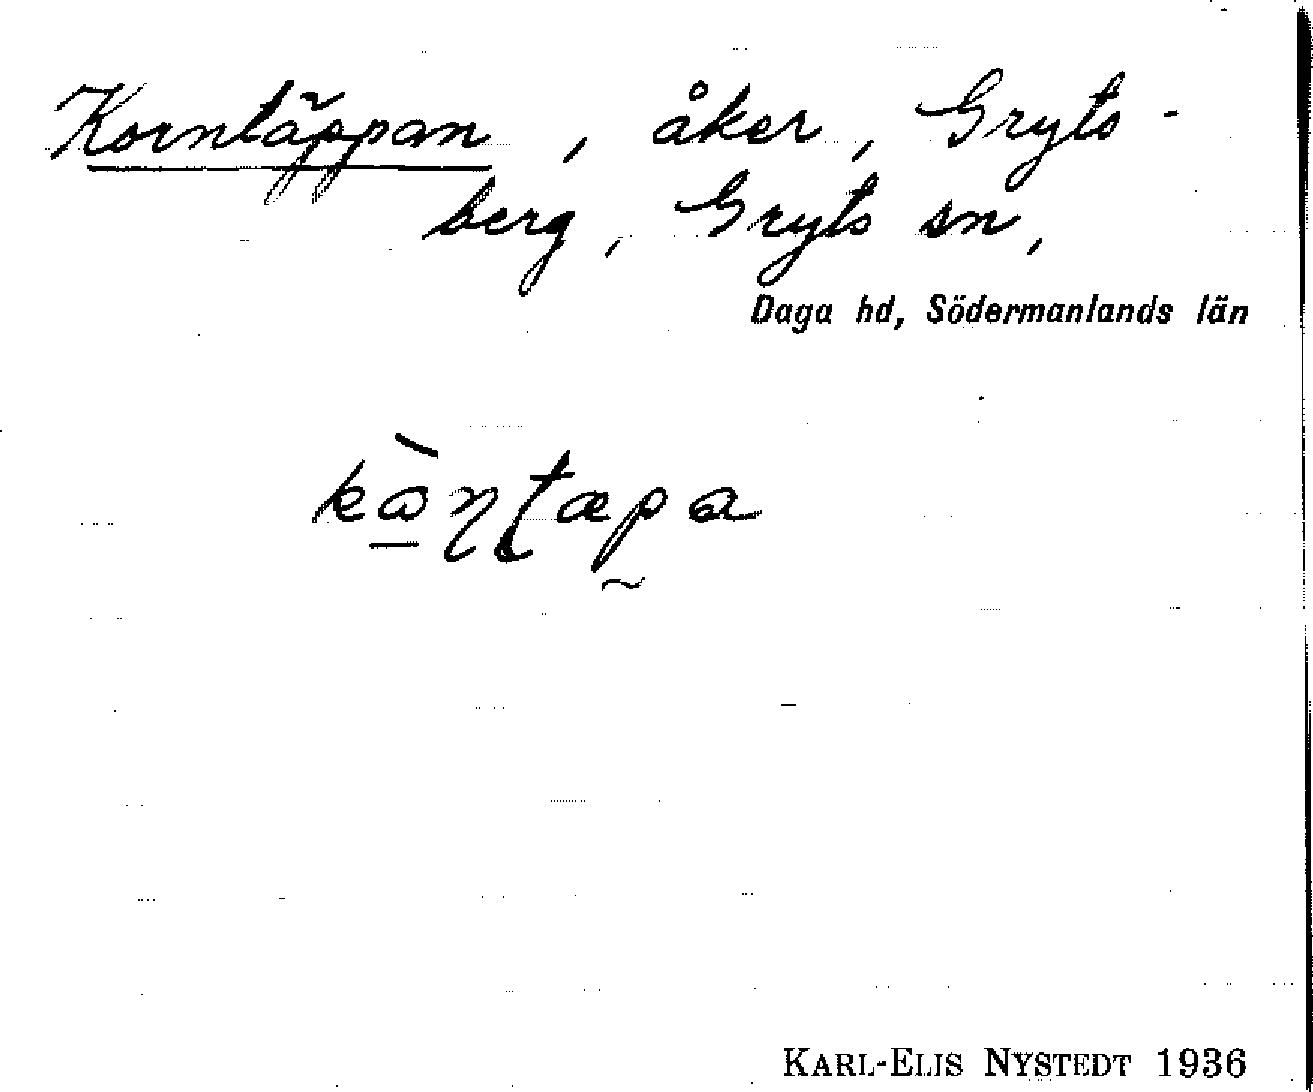 Korntäppan, åker, Gryts-
berg, Gryts sn,
Daga hd, Södermanlands län
kɷ̀ɳʈæpa
KARL-ELIS NYSTEDT 1936